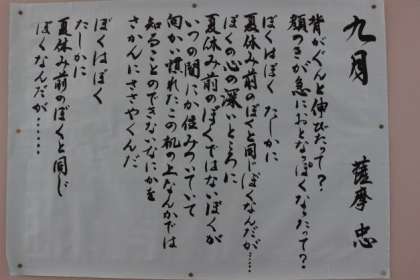 九月
薩摩 忠
背がぐんと伸びたって？
顔つきが急におとなっぽくなったって？
ぼくはぼく たしかに
夏休み前のぼくと同じぼくなんだが……
ぼくの心の深いところに
夏休み前のぼくではないぼくが
いつの間にか住みついていて
向かい慣れたこの机の上なんかでは
知ることのできないなにかを
さかんにささやくんだ
ぼくはぼく
たしかに
夏休み前のぼくと同じ
ぼくなんだが……